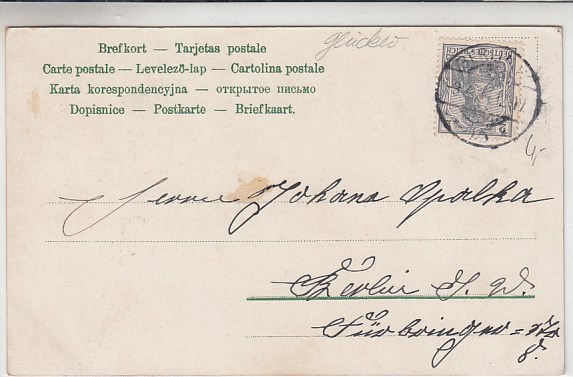 Brefkort — Tarjetas postale
Carte postale — Levelező-lap — Cartolina postale
Karta korespondencyjna — открытое письмо
Dopisnice — Postkarte — Briefkaart.
DEUTSCHES REICH
4,-
Johana Opalka
Berlin S. W.
Fürbringer =
8.